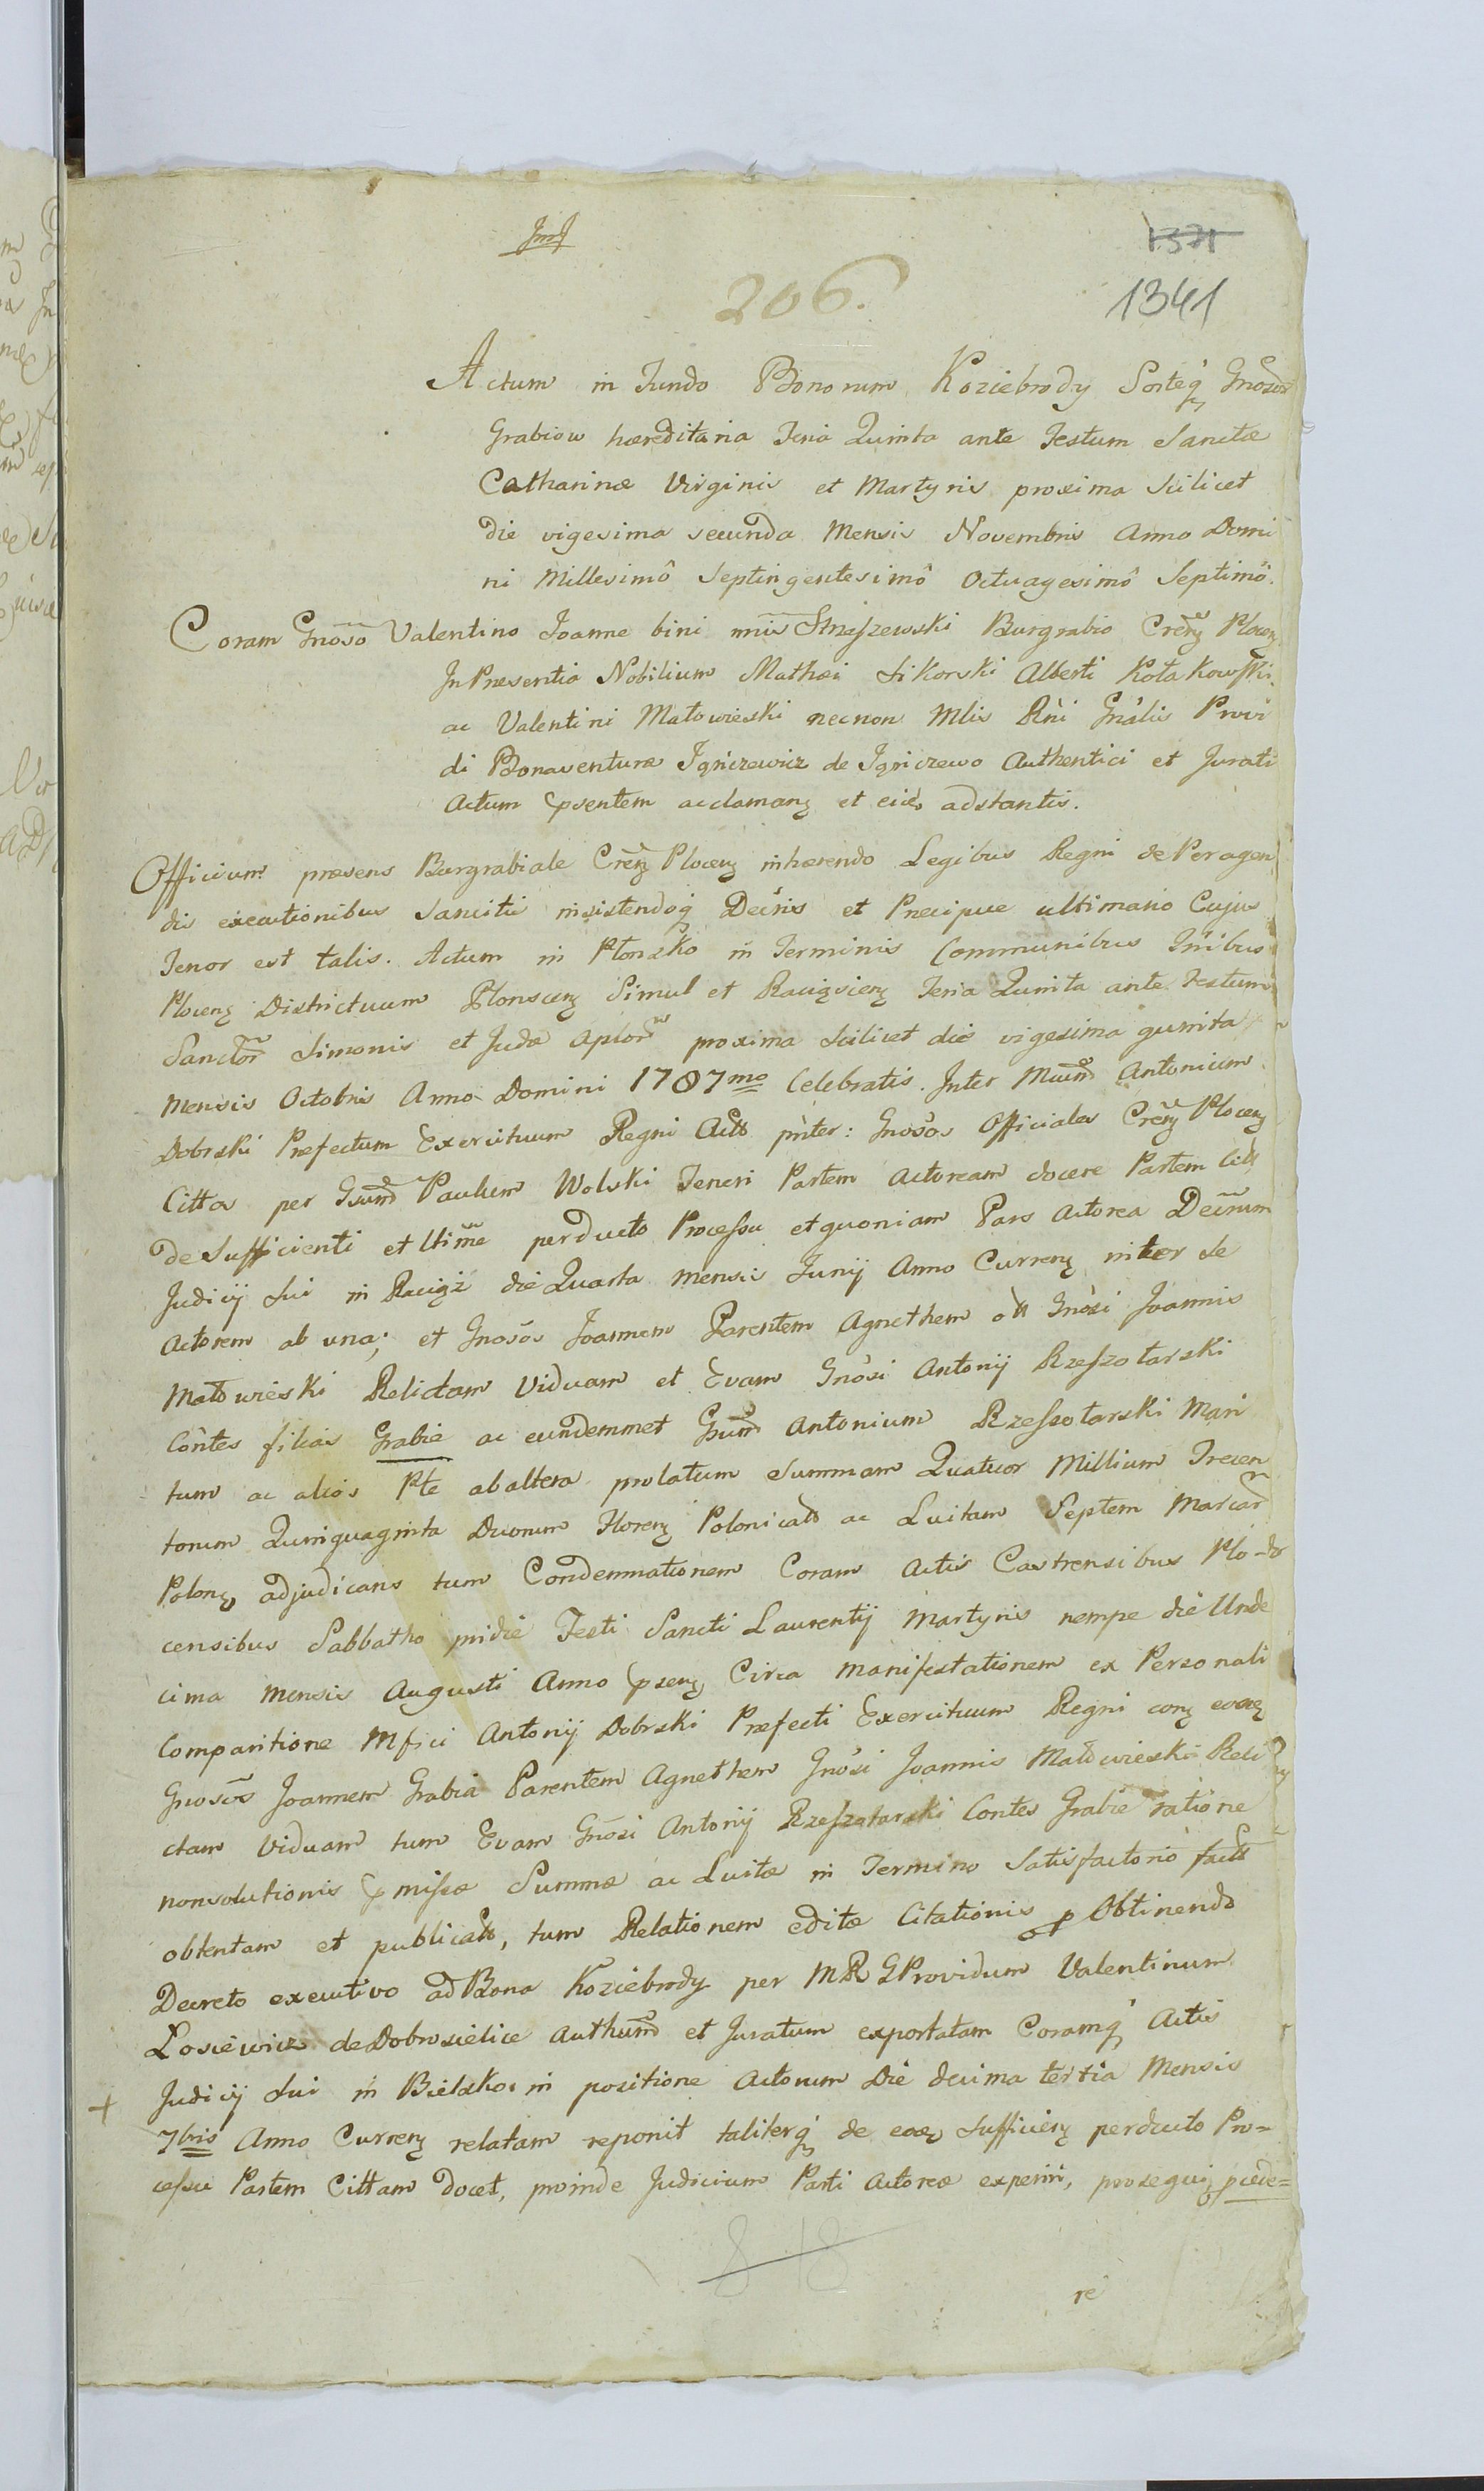 JmJ
1371
206.
1341
Actum in Fundo Bonorum Koziebrody Sorteq Gnosor
Grabiow hæreditaria Feria Quinta ante Festum Sanctæ
Catharinæ Virginis et Martyris proxima scilicet
die vigesima secunda Mensis Novembris Anno Domi
ni Millesimô Septingentesimô Octuagesimô Septimô.
Coram Gnoso Valentino Joanne bini nnis Straszewski Burgrabio Cren Plocen
In Præsentia Nobilium Mathæi Sikorski Alberti Kołakowski
ac Valentini Małowieski necnon Mlis Rni Gnalis Provi
di Bonaventuræ Jgniczewicz de Jgniczewo Authentici et Jurati
Actum psentem acclaman et eid adstantis.
Officium præsens Burgrabiale Cren Plocen inhærendo Legibus Regni de Peragen
dis executionibus sancitis insistendoq Decris et Precipue ultimario Cujus
Tenor est talis. Actum in Płonsko in Terminis Communibus Tribus
Plocen Districtuum Plonscen Simul et Raciąscien Feria Quinta ante Festum
Sanctor Simonis et Judæ Aplor proxima scilicet die vigesima quinta
Mensis Octobris Anno Domini 1787mo Celebratis. Inter Mcum Antonium
Dobrski Præfectum Exercituum Regni Actt pnter: Gnosos Officiales Cren Plocen
Cittos per Gsum Paulum Wolski Teneri Partem Actoream docere Partem Citt
de Sufficienti et ltime perducto Processu et quoniam Pars Actorea Decrum
Judicij Sui in Raciąż die Quarta Mensis Junij Anno Curren inter se
Actorem ab una; et Gnosos Joannem Parentem Agnethem ott Gnosi Joannis
Małowieski Relictam Viduam et Evam Gnosi Antonij Rzeszotarski
Contes filias Grabie ac eundemmet Gsum Antonium Rzeszotarski Mari
tum ac alios Pte ab altera prolatum Summam Quatuor Millium Trecen
torum Quinquaginta Duorum Floren Polonicall ac Luitam Septem Marcar
Polon adjudicans tum Condemnationem Coram Actis Castrensibus Plo-
censibus Sabbatho pridie Festi Sancti Laurentij Martyris nempe die Unde
cima Mensis Augusti Anno psen Circa Manifestationem ex Personali
Comparitione Mfici Antonij Dobrski Præfecti Exercituum Regni con eosq
Gnosos Joannem Grabia Parentem Agnethem Gnosi Joannis Małowieski Reli
ctam Viduam tum Evam Gnosi Antonij Rzeszotarski Contes Grabie ratione
nonsolutionis pmissæ Summæ ac Luitæ in Termino Satisfactorio factt
obtentam et publicatt, tum Relationem editæ Citationis p Obtinendo
Decreto executivo ad Bona Koziebrody per MRG Providum Valentinum
Łosiewicz de Dobrosielice Authum et Juratum exportatam Coramq Actis
Judicij Sui in Bielsko in positione Actorum Die decima tertia Mensis
+ 7bris Anno Curren relatam reponit taliterq de eoq Sufficien perducto Pro=
cessu Partem Cittam docet, proinde Judicium Parti Actoreæ experiri, prosequi, pcede=
818
re